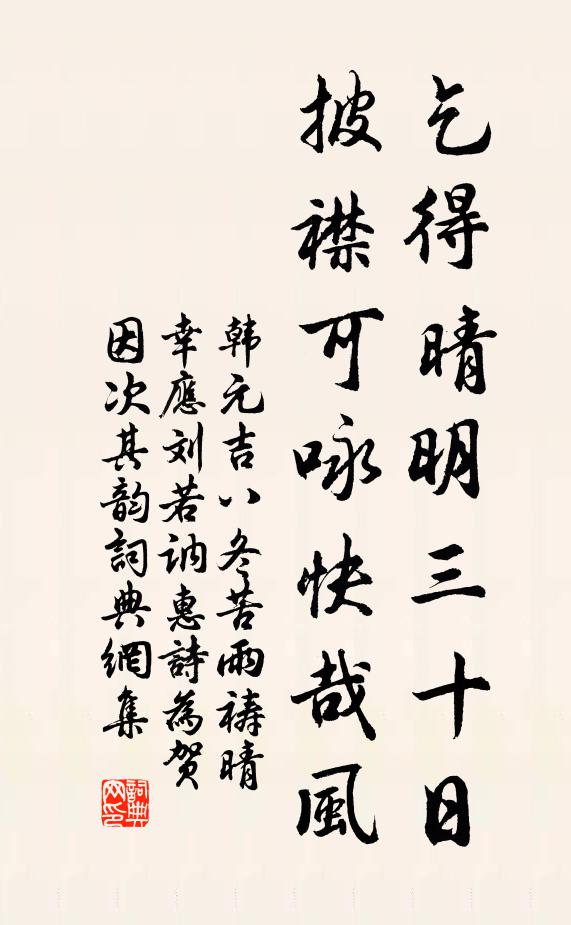 乞得晴明三十日
披襟可咏快哉風
韩元吉八冬苦雨祷晴
幸應刘若讷惠詩為贺
因次其韵詞典網集
詞典網印